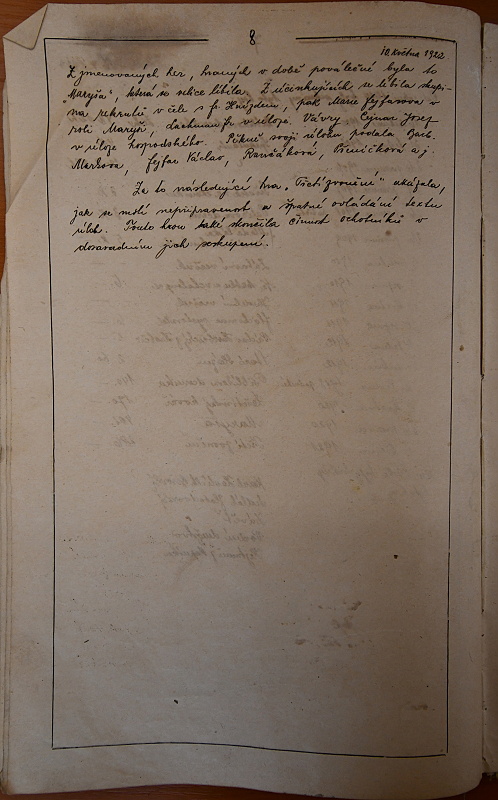 8
10. května 1922
Z jmenovaných her, hraných v době poválečné byla to
"Maryša", která se velice líbila. Z účinkujících se líbila skupi-
na rekrutů v čele s fr. Hnízdem, pak Marie Fejfarova v
roli Maryši, Lachman Jn v úloze Vávry, Cejnar Josef
v úloze hospodského. Pěkně svoji úlohu podala Barb.
Markova, Fejfar Václav, Kraušáková, Pěničková a j.
Za to následující hra "Třetí zvonění" ukázala,
jak se mstí nepřipravenost a špatné ovládání textu
úloh. Touto hrou také skončila činnost ochotníků v
dosavadním jich seskupení.